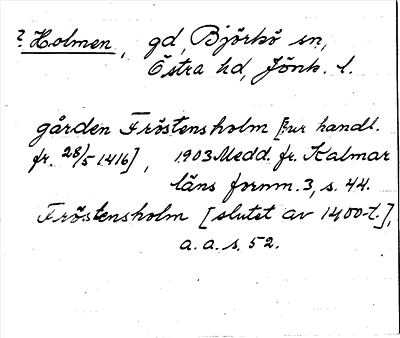 ? Holmen, gd, Björkö sn,
Östra hd, Jönk. l.
gården Fröstensholm [ur handl.
fr. 28/5 1416], 1903 Medd. fr. Kalmar
läns fornm. 3, s. 44.
Fröstensholm [slutet av 1400-t.],
a. a. s. 52.